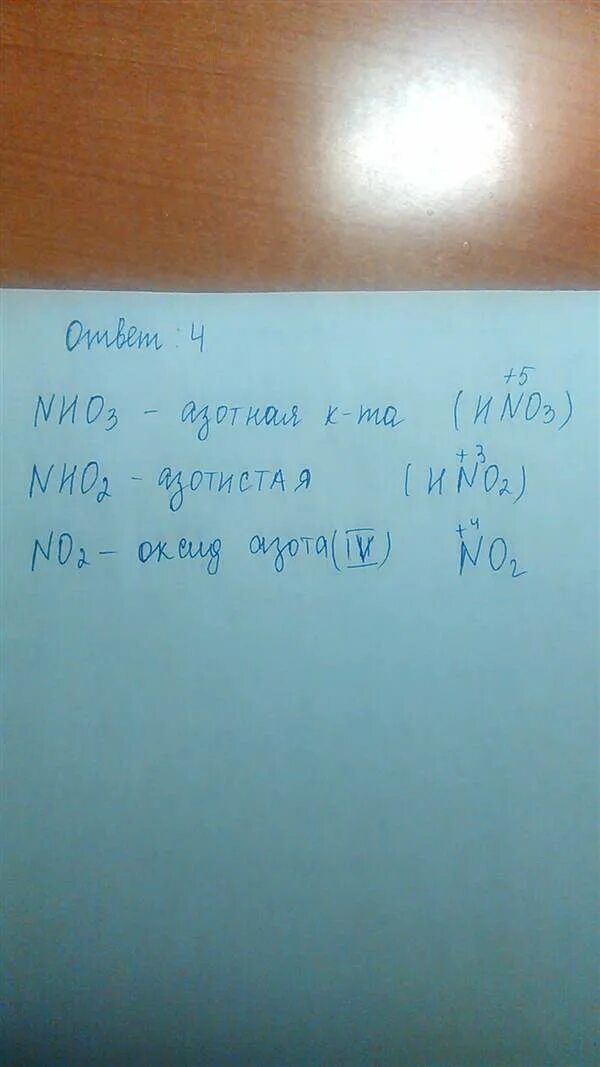 Ответ: 4
NHO3 - азотная к-та (HN⁺⁵O3)
NHO2 - азотистая (HN⁺³O2)
NO2 - оксид азота (IV) N⁺⁴O2